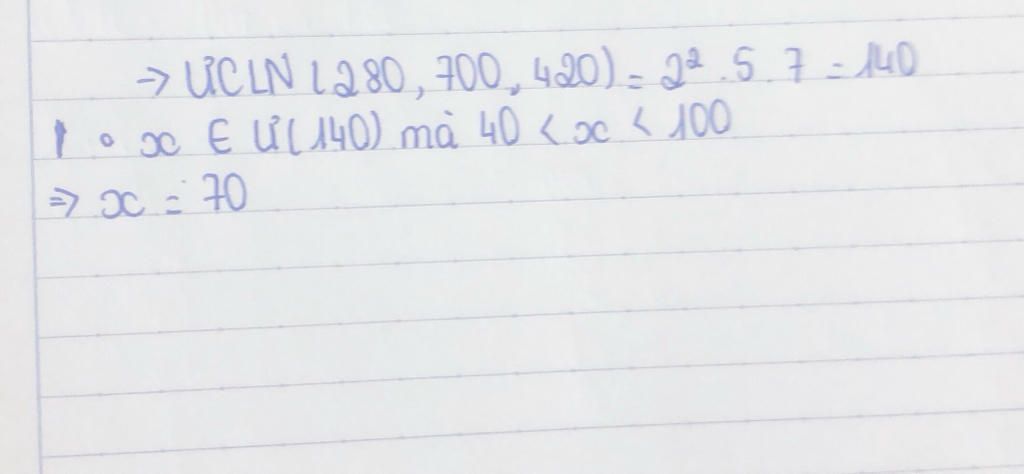 → ƯCLN (280, 700, 420) = 2² . 5 . 7 = 140
∘ x ∈ Ư(140) mà 40 < x < 100
⇒ x = 70